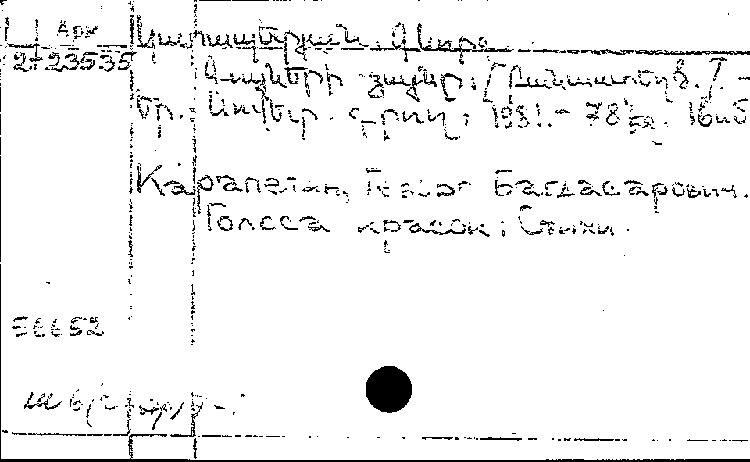 Арх
2+23535
Կարապետյան, Գևորգ
Գույների ձայներ: [Բանաստեղծ.]. –
Եր.: Սովետ. գրող, 1981. – 78 էջ.
Карапетян, Геворг Багдасарович.
Голоса красок: Стихи.
56652